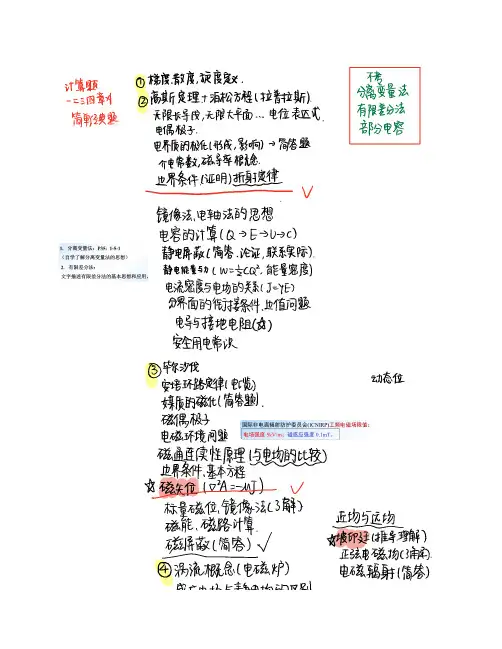 计算题
一二三四章为
简单3类题
不考
分离变量法
有限差分法
部分电容
① 梯度.散度,旋度定义.
② 高斯定理+泊松方程(拉普拉斯)
无限长导线,无限大平面…电位表达式.
电偶极子.
电介质的极化(形成,影响)→简答题
介电常数,磁导率概念.
边界条件(证明)折射定律
镜像法,电轴法的思想
电容的计算(Q→E→U→C)
静电屏蔽(简答.论证,联系实际).
静电能量与力(W=½CQ²,能量密度)
电流密度与电场的关系(J=γE)
分界面的衔接条件.边值问题
电导与接地电阻(☆)
安全用电常识
1. 分离变量法:P55:1-5-1
(自学了解分离变量法的思想)
2. 有限差分法:
文字描述有限差分法的基本思想和应用。
③ 毕奥沙伐
安培环路定律(电缆)
媒质的磁化(简答题).
磁偶极子
电磁环境问题
国际非电离辐射防护委员会(ICNIRP)工频电磁场限值:
电场强度 5kV/m;磁感应强度 0.1mT。
磁通连续性原理(与电场的比较)
边界条件.基本方程
☆ 磁矢位(∇²A=-μJ)
标量磁位,镜像法(了解)
磁能、磁路计算.
磁屏蔽(简答)
④ 涡流概念(电磁炉)
感应电场与静电场的区别
动态位
近场与远场
☆坡印廷(推导理解)
正弦电磁场(3海冈).
电磁辐射(简答)